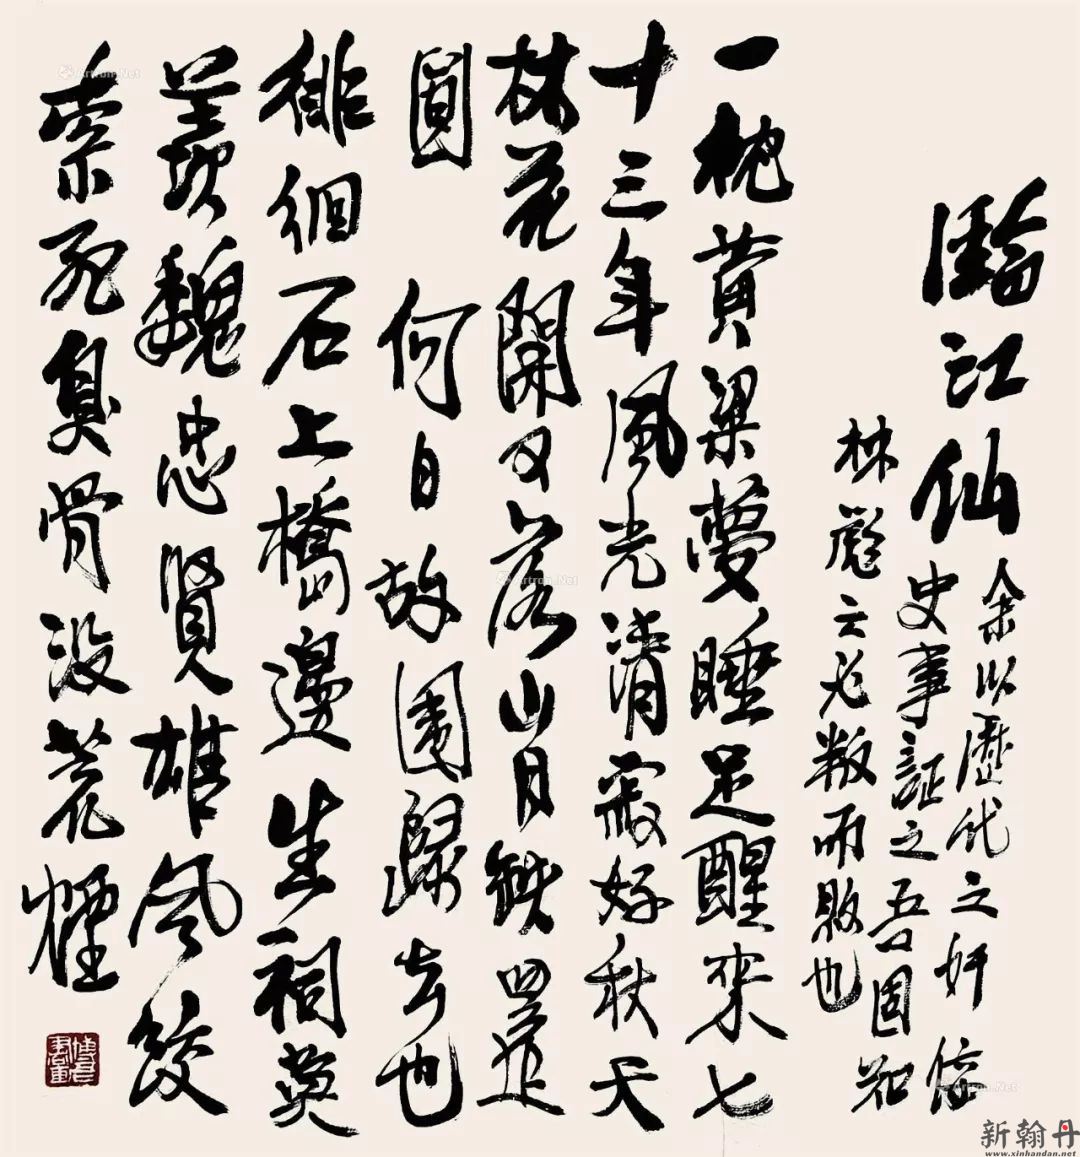 臨江仙 余以歷代之奸佞
史事証之吾固知
林彪之必叛而敗也
一枕黃粱夢睡足醒來七
十三年風光清寂好秋天
林花開又落山月缺還
圓 何日故園歸去也
徘徊石上橋邊生祠莫
羨魏忠賢雄風絞
索死臭骨沒荒煙
Artron.Net
Artron.Net
Artron.Net
新翰丹
www.xinhandan.net